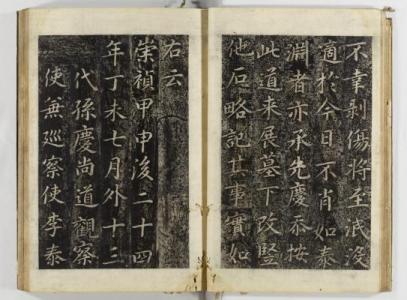 不幸剝傷將至泯沒
適於今日不肖如泰
淵者亦承先慶忝按
此道来展墓下改竪
他石略記其事實如
右云
崇禎甲申後二十四
年丁未七月外十三
代孫慶尚道觀察
使兼巡察使李泰